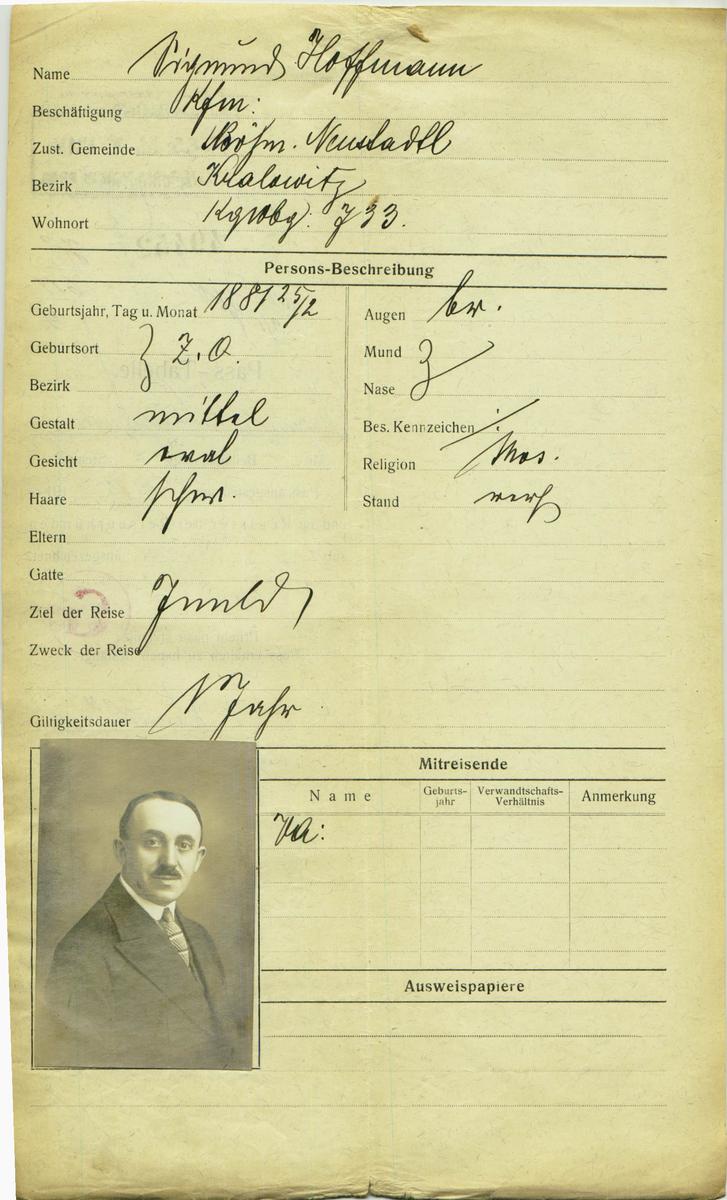 Name Sigmund Hoffmann
Beschäftigung Kfm:
Zust. Gemeinde Böhm. Neustadtl
Bezirk Kralowitz
Wohnort Kgwbg. 733.
Persons-Beschreibung
Geburtsjahr, Tag u. Monat 1881 25/2
Augen br.
Geburtsort Z. O.
Mund
Bezirk
Nase
Gestalt mittel
Bes. Kennzeichen
Gesicht oval
Religion Mos.
Haare schw.
Stand verh
Eltern
Gatte
Ziel der Reise Inuld
Zweck der Reise
Giltigkeitsdauer 1 Jahr
Mitreisende
Name Geburts-jahr Verwandtschafts-Verhältnis Anmerkung
Ausweispapiere